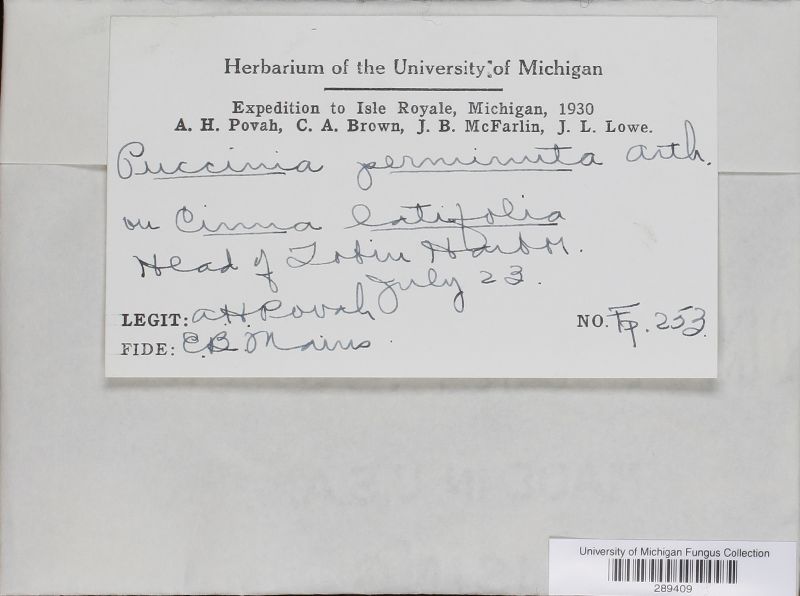 Herbarium of the University of Michigan
Expedition to Isle Royale, Michigan, 1930
A. H. Povah, C. A. Brown, J. B. McFarlin, J. L. Lowe.
Puccinia perminuta Arth.
on Cinna latifolia
Head of Tobin Harbor.
July 23.
LEGIT: A.H. Povah
NO. Fp. 253.
FIDE: E.B. Mains.
University of Michigan Fungus Collection
289409